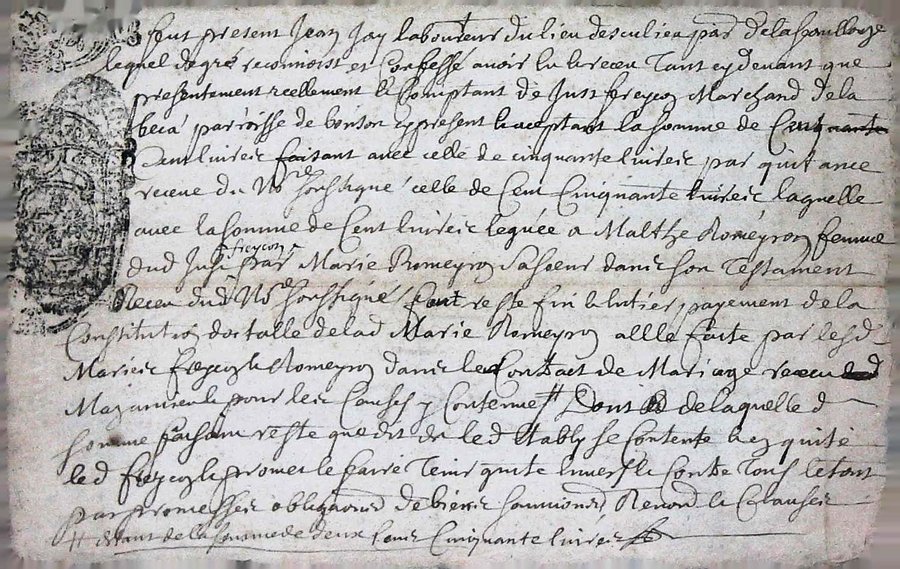 feut present Jean Jay laboureur du lieu desculieu par de lapaullouze
lequel de gré reconnoist et Confesse avoir hu & receu Tant cy devant que
presentement reellement & Comptant de Just freycon Marchand de la
beca parroisse de bonson cy present & aceptant la somme de Cinquante
Cent livres faisant avec celle de cinquante livres par quitance
receue du No.re soussigné celle de Cent Cinquante livres laquelle
avec la somme de Cent livres leguée a Malthe Romeyron femme
dud Just freycon par Marie Romeyron sa soeur dans son Testament
Receu dud No.re soussigné font reste fin & entier payement de la
Constitution dottalle de lad Marie Romeyron a elle faite par lesd
Maries freycon & Romeyron dans le Contract de Mariage receu
pour les Causes y Contenues # Dont de laquelle d
somme faisant reste que dit est led Stably se Contente & en quite
led freycon & promet le faire Tenir quite envers & Contre Tous le tout
par promesses obligaons de biens soumions Renons & Clauses
# estant de la somme de deux Cens Cinquante livres